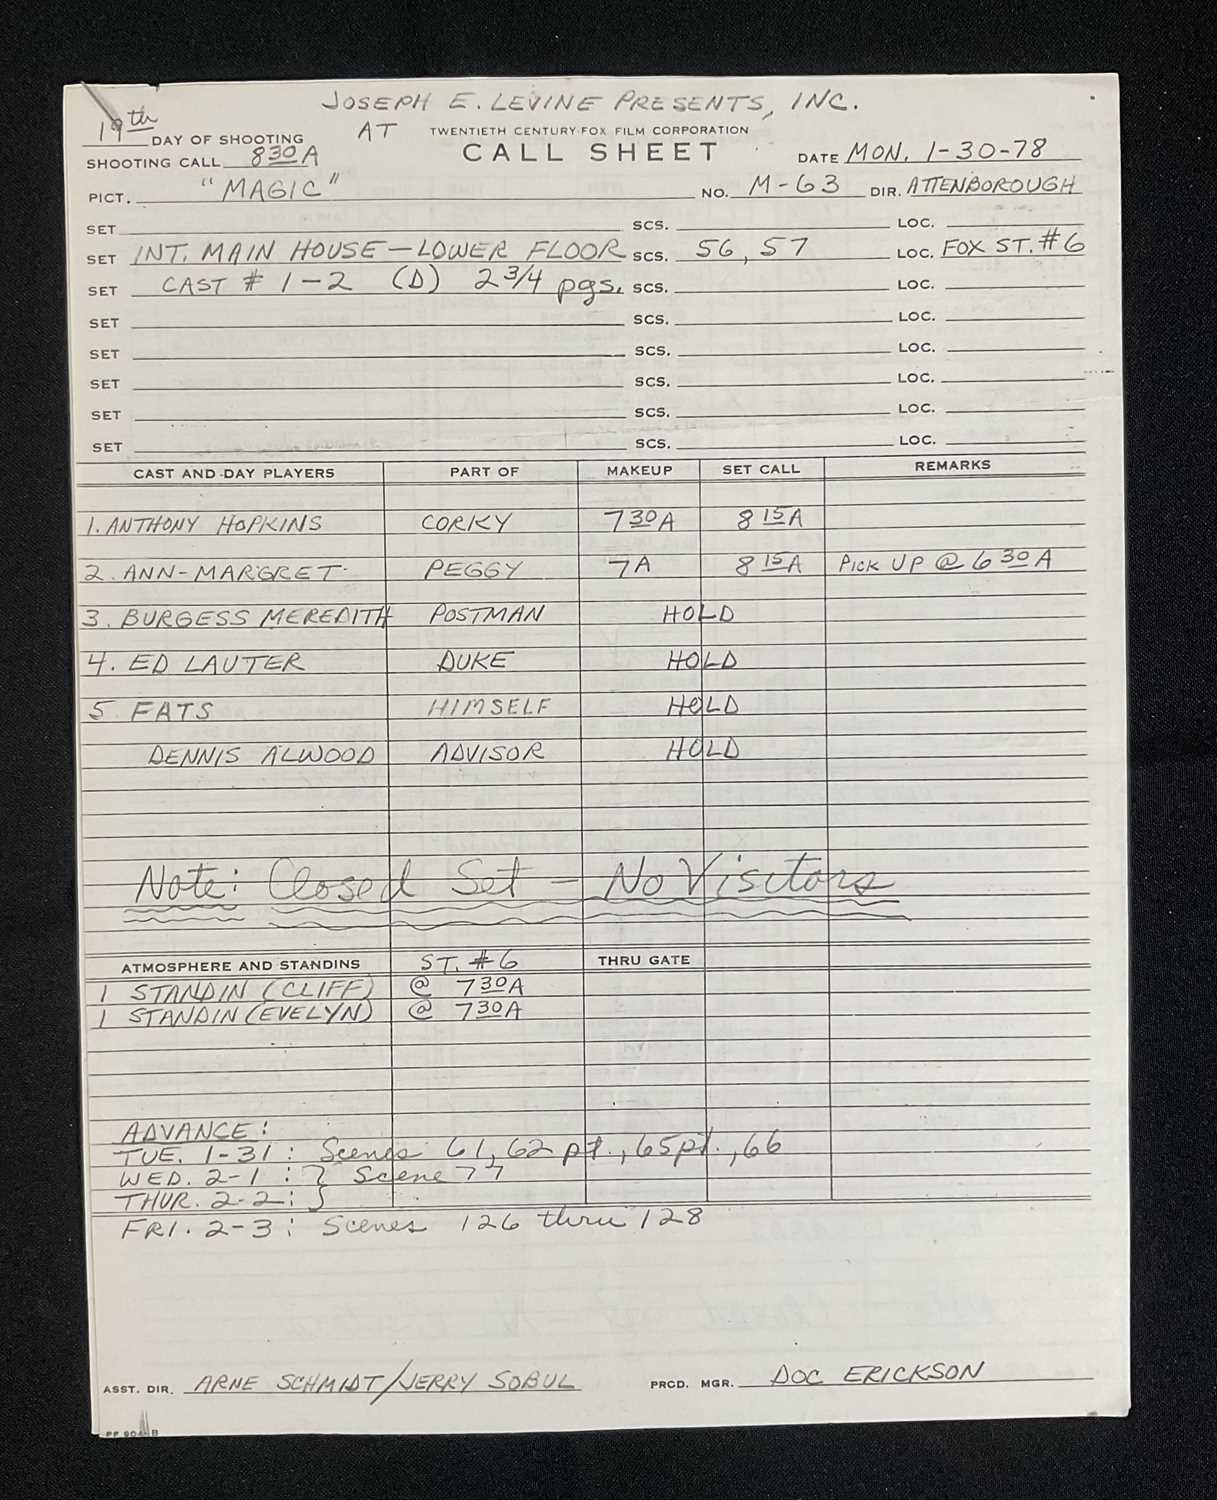 JOSEPH E. LEVINE PRESENTS, INC.
19th DAY OF SHOOTING AT TWENTIETH CENTURY-FOX FILM CORPORATION
SHOOTING CALL 8 30 A CALL SHEET DATE MON. 1-30-78
PICT. "MAGIC" NO. M-63 DIR. ATTENBOROUGH
SET SCS. LOC.
SET INT. MAIN HOUSE - LOWER FLOOR SCS. 56, 57 LOC. FOX ST. #6
SET CAST # 1-2 (D) 2 3/4 pgs. SCS. LOC.
SET SCS. LOC.
SET SCS. LOC.
SET SCS. LOC.
SET SCS. LOC.
SET SCS. LOC.
CAST AND DAY PLAYERS PART OF MAKEUP SET CALL REMARKS
1. ANTHONY HOPKINS CORKY 7 30 A 8 15 A
2. ANN-MARGRET PEGGY 7A 8 15 A PICK UP @ 6 30 A
3. BURGESS MEREDITH POSTMAN HOLD
4. ED LAUTER DUKE HOLD
5 FATS HIMSELF HOLD
DENNIS ALWOOD ADVISOR HOLD
Note: Closed Set - No Visitors
ATMOSPHERE AND STANDINS ST. #6 THRU GATE
1 STANDIN (CLIFF) @ 7 30 A
1 STANDIN (EVELYN) @ 7 30 A
ADVANCE:
TUE. 1-31: Scenes 61, 62 pt., 65 pt., 66
WED. 2-1 : } Scene 77
THUR. 2-2: }
FRI. 2-3: Scenes 126 thru 128
ASST. DIR. ARNE SCHMIDT/JERRY SOBUL PROD. MGR. DOC ERICKSON